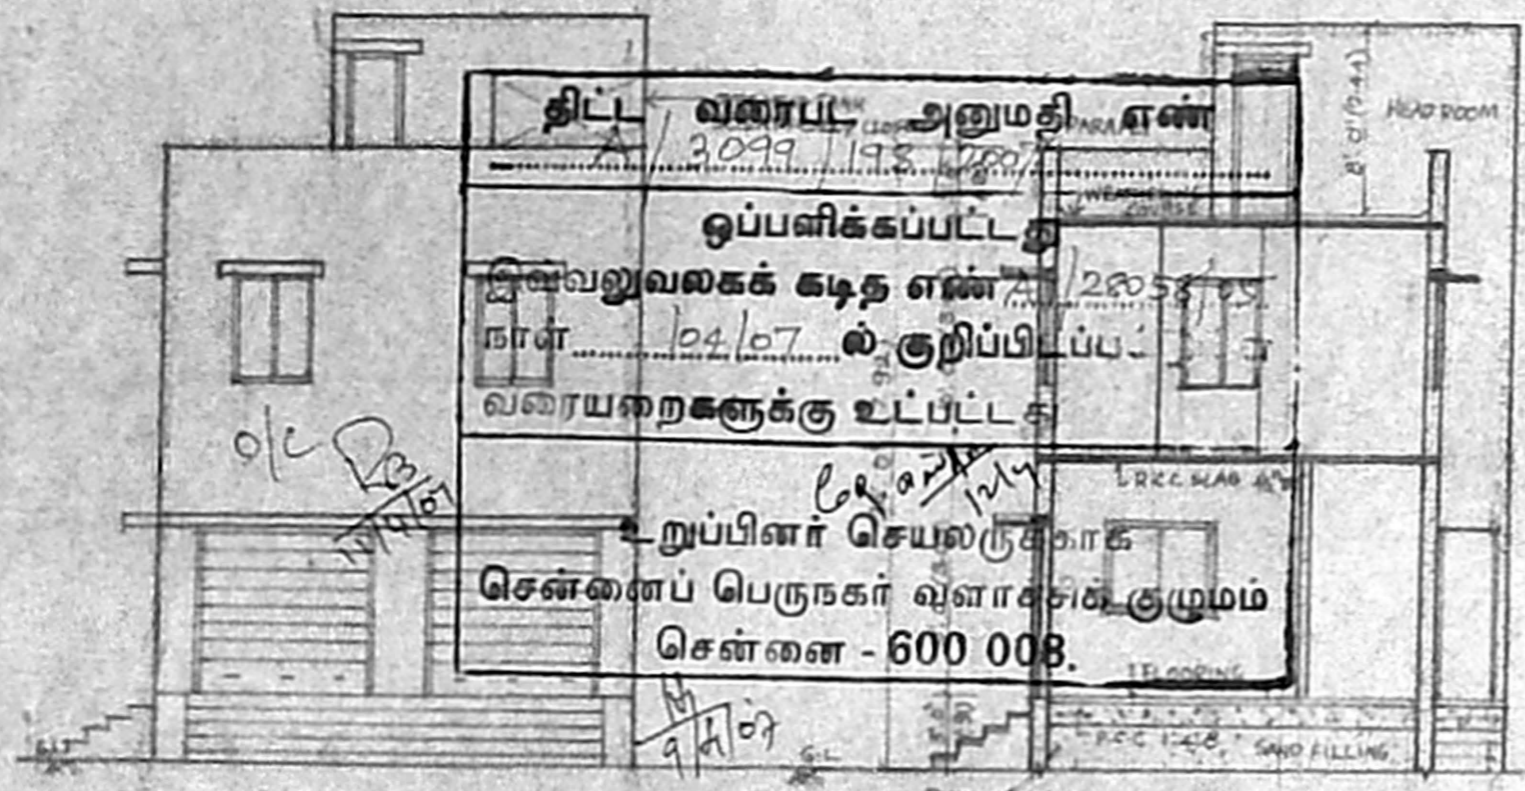 திட்ட வரைபட அனுமதி எண்
A / 3099 / 198 / 2007
ஒப்பளிக்கப்பட்டது
இவ்வலுவலகக் கடித எண்
நாள் /04/07 ல் குறிப்பிடப்பட்
வரையறைகளுக்கு உட்பட்டது
உறுப்பினர் செயலருக்காக
சென்னைப் பெருநகர் வளர்ச்சிக் குழுமம்
சென்னை - 600 008.
HEAD ROOM
8'0"(2.44)
WEATHERING COURSE
R.C.C SLAB
FLOORING
P.C.C 1:4:8
SAND FILLING
G.L
O/C
9/4/07